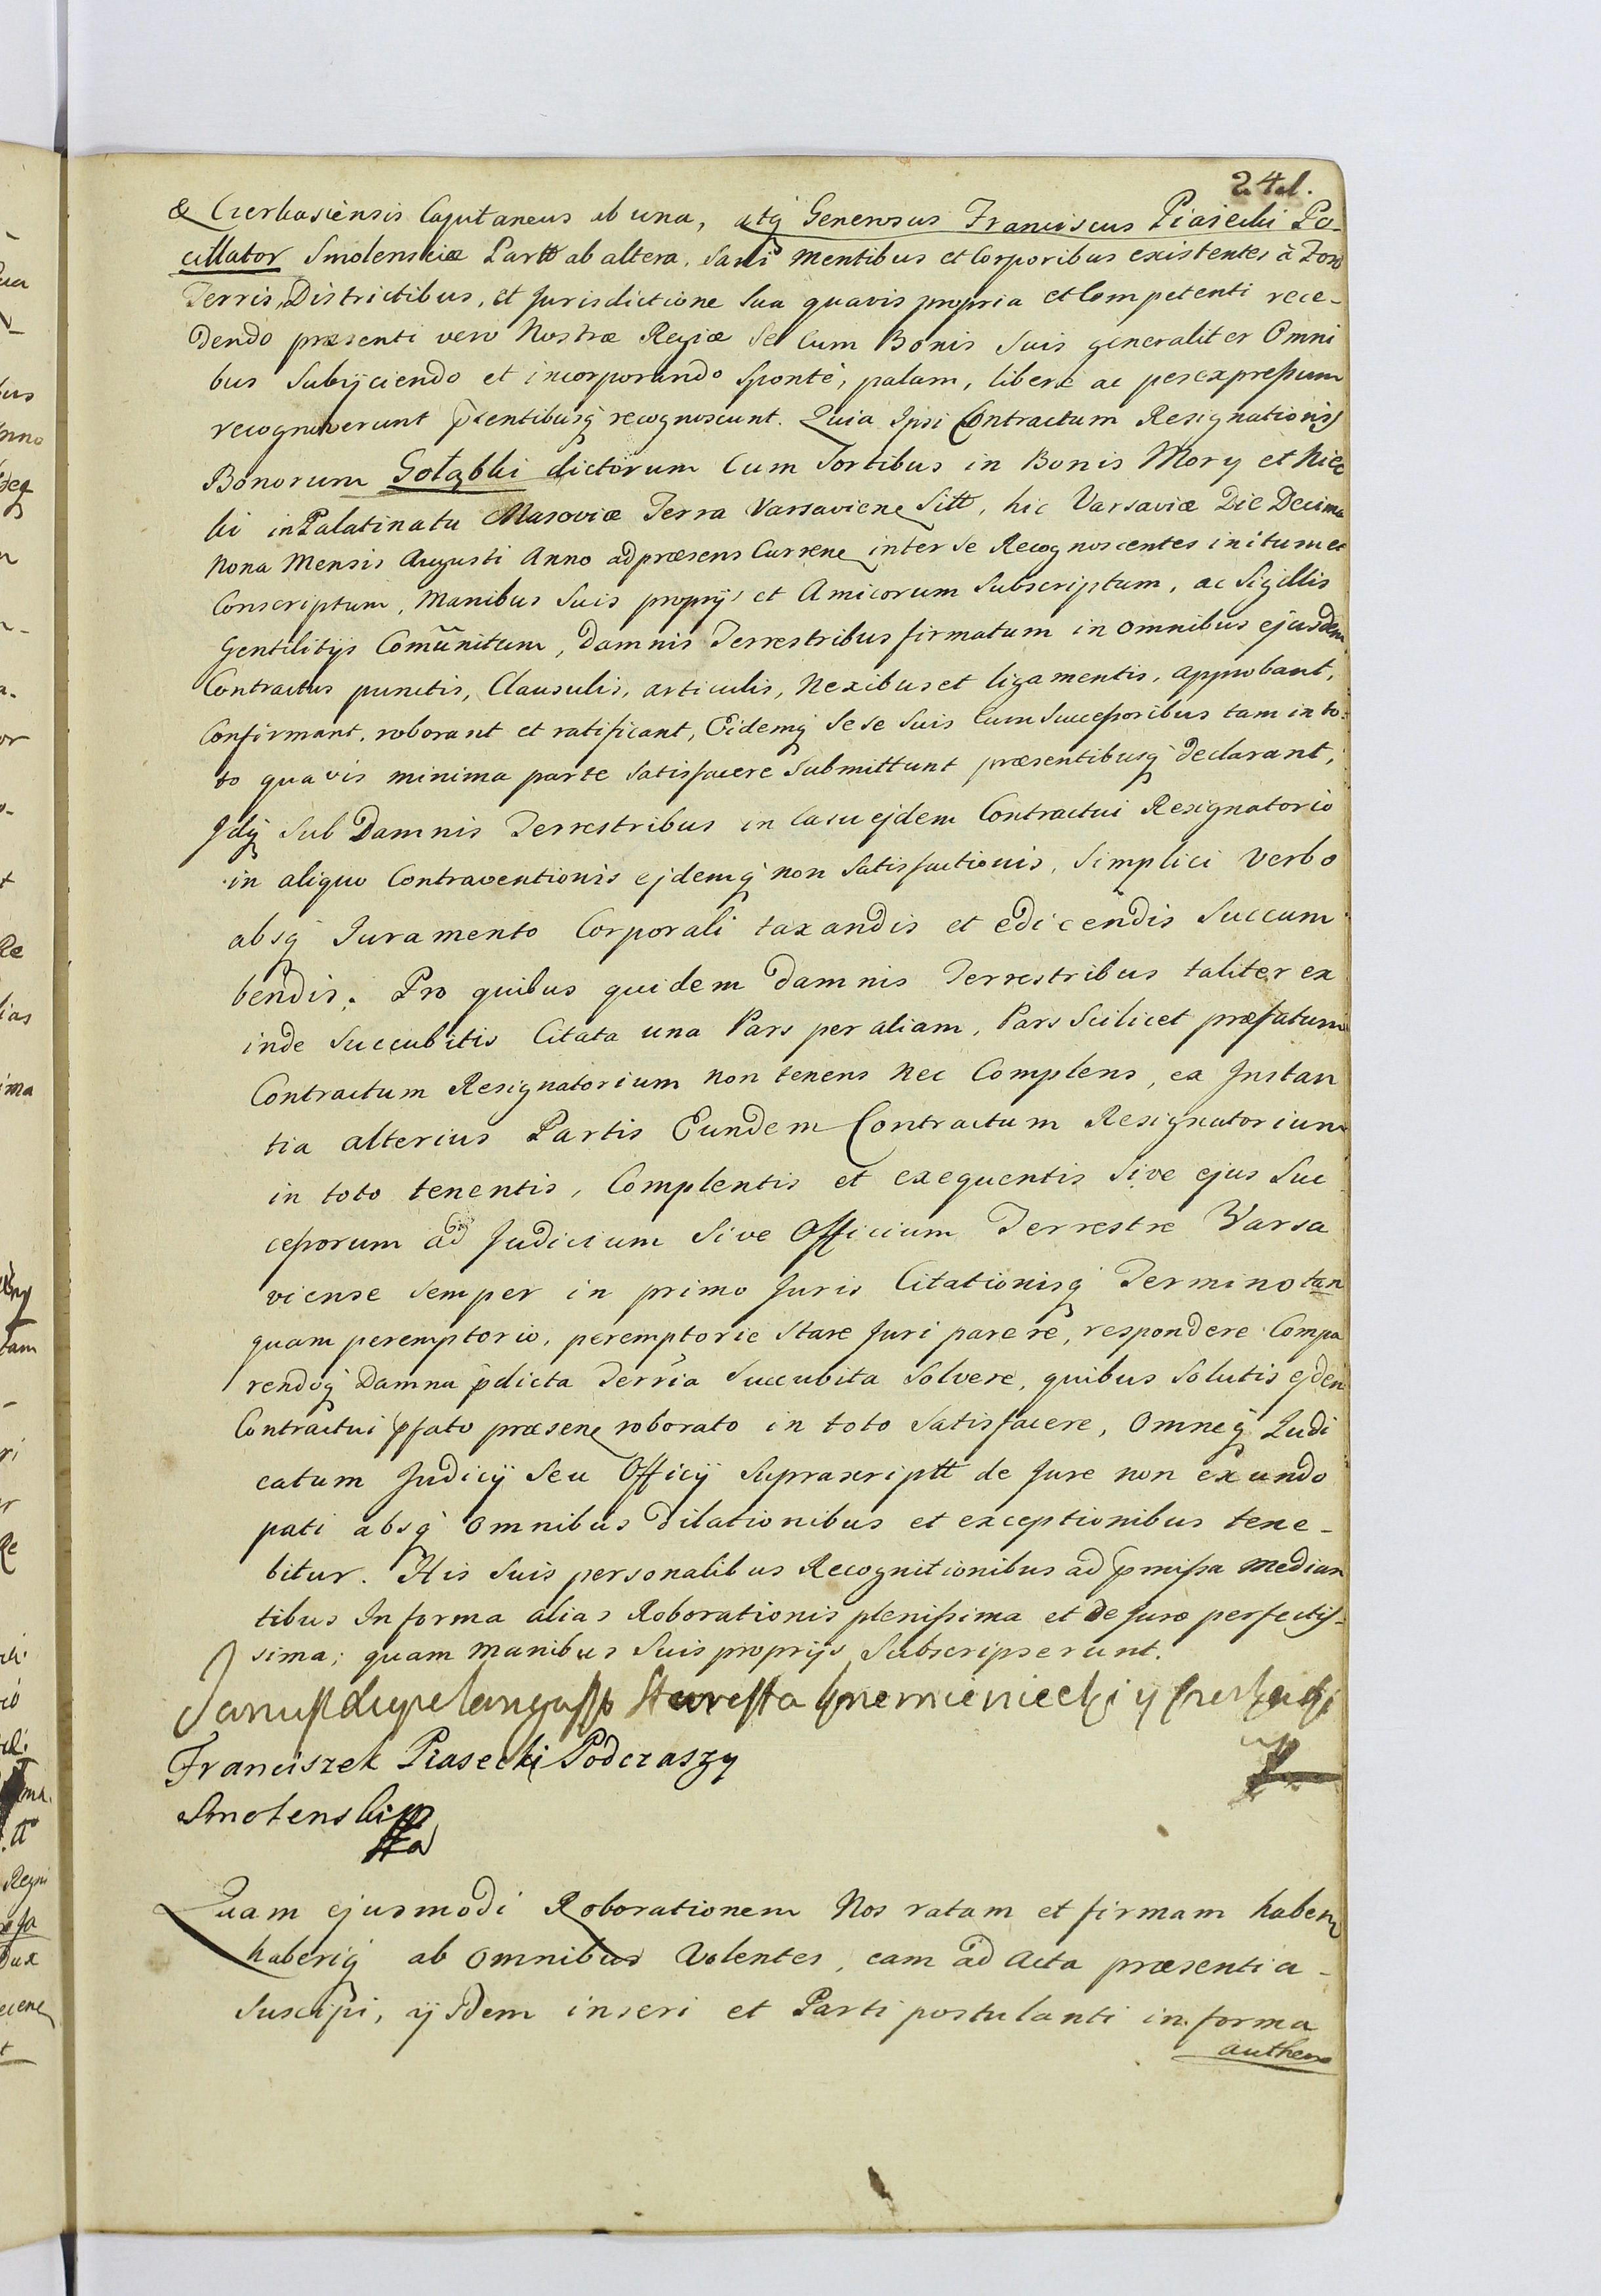 241.
& Czerkasiensis Capitaneus ab una, atq Generosus Franciscus Piasecki Po-
cillator Smolensciæ Partt ab altera, Sani mentibus et Corporibus existentes à Foro
Terris, Districtibus, et Jurisdictione Sua quavis propria et Competenti rece-
dendo præsenti vero Nostræ Regiæ Se Cum Bonis Suis generaliter Omni
bus Subijciendo et incorporando Sponté, palam, liberé ac per expressum
recognoverunt pñtentibusq recognoscunt. Quia Ipsi Contractum Resignationis
Bonorum Gołąbki dictorum Cum Sortibus in Bonis Mory et
ki in Palatinatu Masoviæ Terra Varsaviene Sitt, hic Varsaviæ Die Decima
Nona Mensis Augusti Anno ad præsens Currene inter Se Recognoscentes initum et
Conscriptum, Manibus Suis proprijs et Amicorum Subscriptum, ac Sigillis
Gentilitijs Comũnitum, Damnis Terrestribus firmatum in omnibus ejusdem
Contractus punctis, Clausulis, articulis, Nexibus et ligamentis, approbant,
Confirmant, roborant et ratificant, Eidemq Sese Suis Cum Successoribus tam in to-
to quavis minima parte Satisfacere Submittunt præsentibusq declarant,
Idq Sub Damnis Terrestribus in Casu ejdem Contractui Resignatorio
in aliquo Contraventionis ejdemq non Satisfactionis, Simplici Verbo
absq Juramento Corporali taxandis et edicendis Succum
bendis. Pro quibus quidem Damnis Terrestribus taliter ex
inde Succubitis Citata una Pars per aliam, Pars Scilicet præfatum
Contractum Resignatorium non tenens Nec Complens, ea Instan
tia alterius Partis Eundem Contractum Resignatorium
in toto tenentis, Complentis et exequentis Sive ejus Suc
cessorum ad Judicium Sive Officium Terrestre Varsa
viense Semper in primo Juris Citationisq Termino tan
quam peremptorio, peremptorie Stare Juri parere, respondere Compa
rendoq Damna pdicta Terria Succubita Solvere, quibus Solutis ejdem
Contractui pfato præsene roborato in toto Satisfacere, Omneq Judi
catum Judicij Seu Officij Suprascriptt de Jure non exeundo
pati absq omnibus dilationibus et exceptionibus tene-
bitur. His Suis personalibus Recognitionibus ad pmissa median
tibus In forma alias Roborationis plenissima et de Jure perfectis-
sima; quam manibus Suis proprijs Subscripserunt.
Franciszek Piasecki Podczaszy
Smolenski mp
Quam ejusmodi Roborationem Nos ratam et firmam haben
haberiq ab omnibus Volentes, eam ad Acta præsentia
Suscipi, ijsdem inseri et Parti postulanti in forma
authen